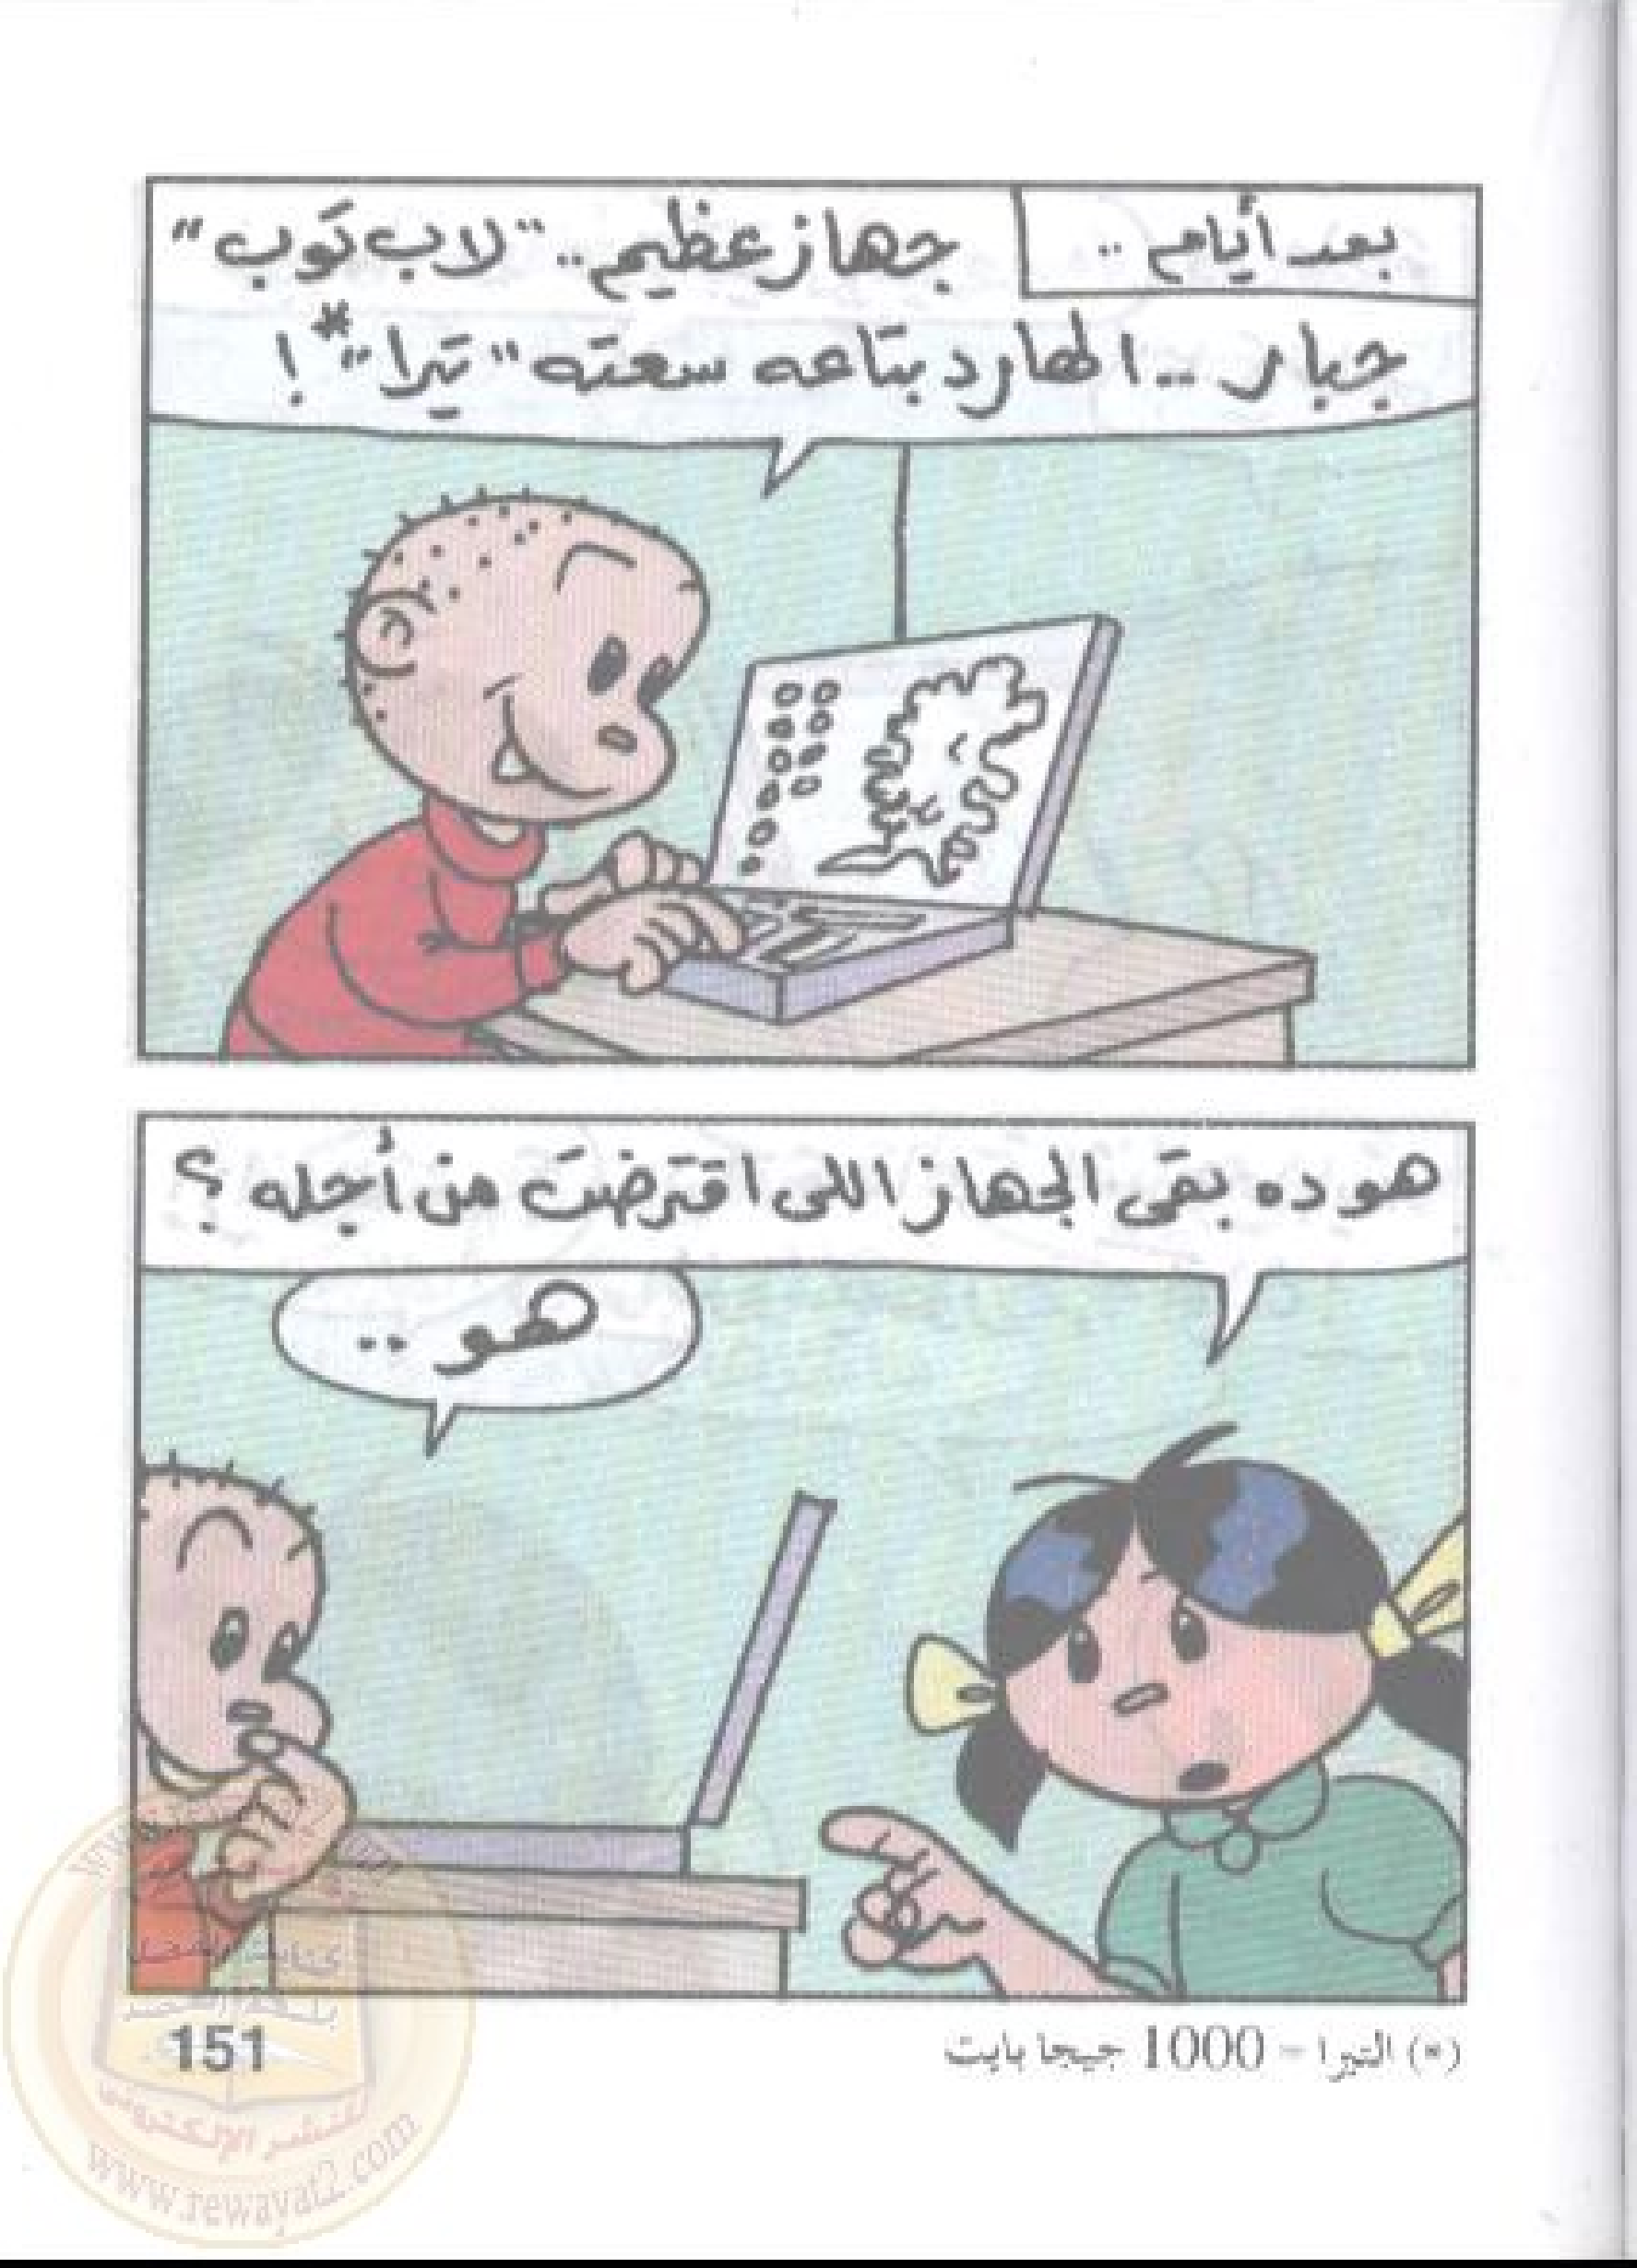 بعد أيام ..
جهاز عظيم .. "لاب توب"
جبار .. الهارد بتاعه سعته "تيرا"* !
هو ده بقى الجهاز اللى اقترضت من أجله ؟
هو ..
(*) التيرا - 1000 جيجا بايت
151
www.rewayat2.com